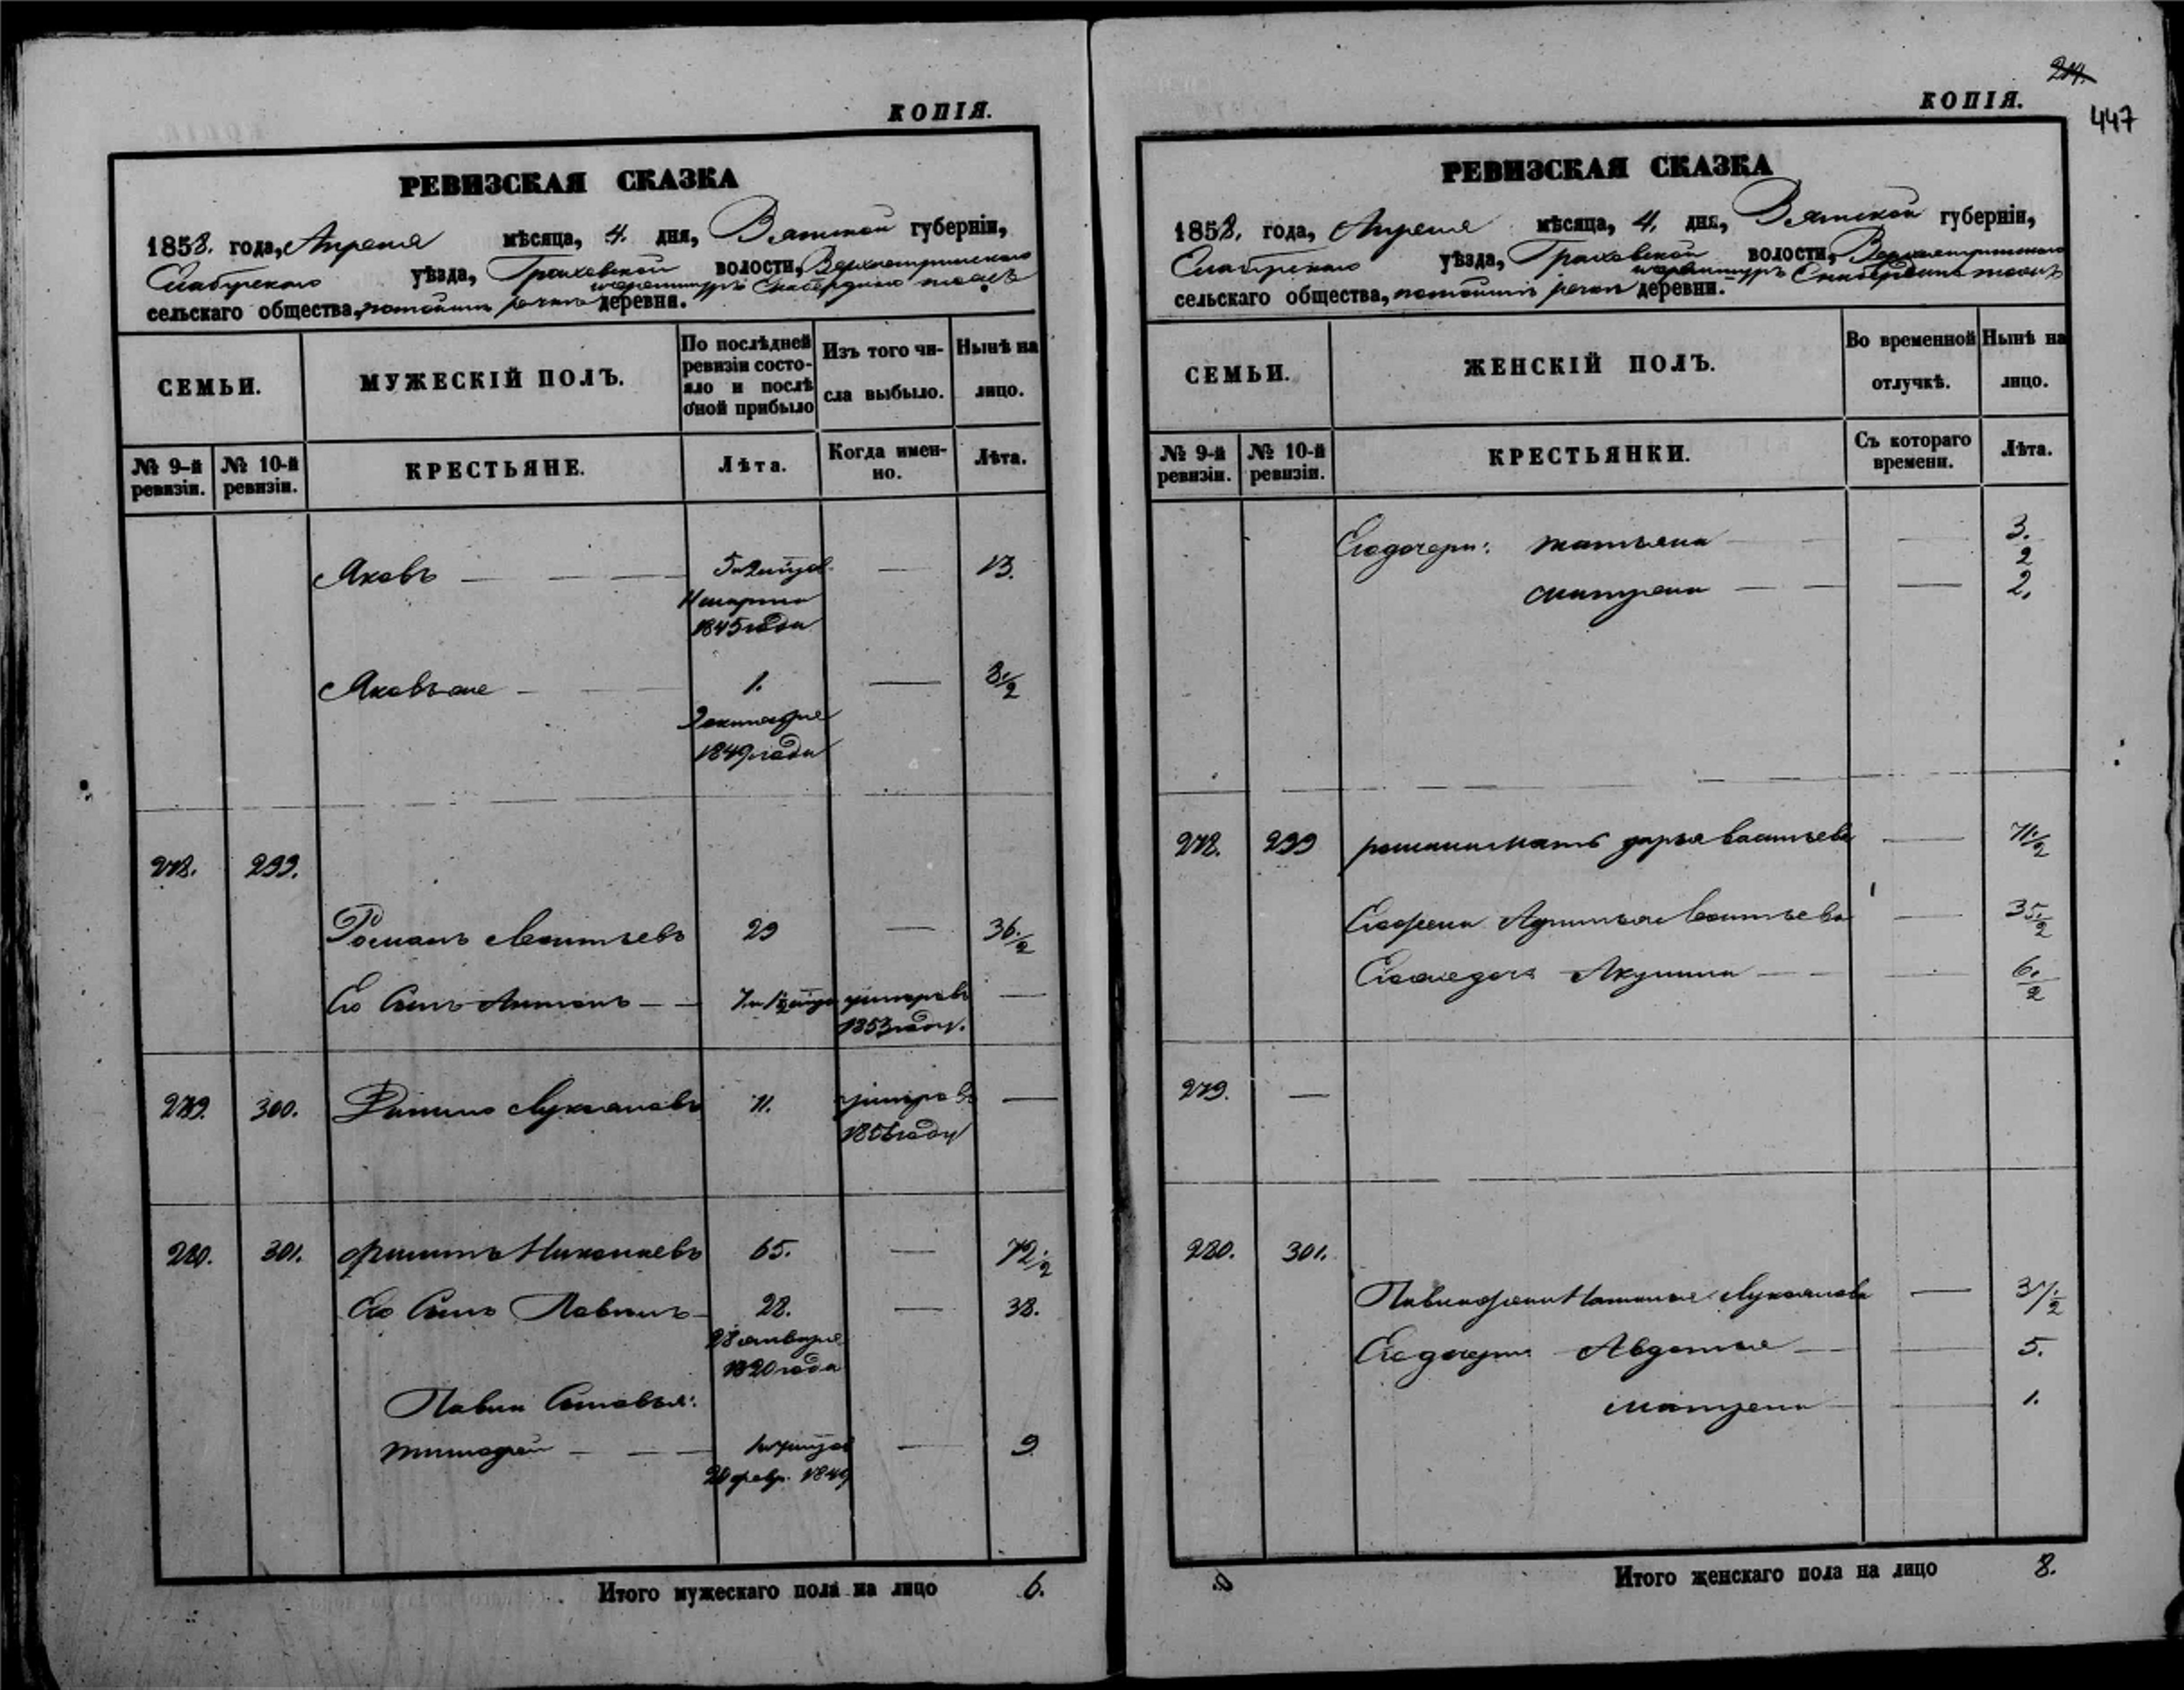 КОПІЯ.
РЕВИЗСКАЯ СКАЗКА
1858. года, Апреля мѣсяца, 4. дня, Вятской губерніи,
Елабугскаго уѣзда, Граховской волости,
сельскаго общества, деревни.
СЕМЬИ.
МУЖЕСКІЙ ПОЛЪ.
По послѣдней ревизіи состояло и послѣ оной прибыло
Изъ того числа выбыло.
Нынѣ на лицо.
№ 9-й ревизіи.
№ 10-й ревизіи.
КРЕСТЬЯНЕ.
Лѣта.
Когда именно.
Лѣта.
Яковъ — — — — 13.
1845 года
Яковъ же — — 1. — 3½
1849 года
278. 299.
Романъ Леонтьевъ 29 — 36½
Его Сынъ Антонъ — — умеръ въ —
1853 году.
279. 300. Данило Лукояновъ 11. умеръ въ —
году
280. 301. Филипъ Николаевъ 65. — 72½
Его Сынъ Павелъ — 28. — 38.
28 января
1820 года
Павла Сыновья:
Тимофей — — — — 9.
20 февр. 1849
Итого мужескаго пола на лицо 6.
214.
447
КОПІЯ.
РЕВИЗСКАЯ СКАЗКА
1858. года, Апреля мѣсяца, 4. дня, Вятской губерніи,
Елабугскаго уѣзда, Граховской волости,
сельскаго общества, деревни.
СЕМЬИ.
ЖЕНСКІЙ ПОЛЪ.
Во временной отлучкѣ.
Нынѣ на лицо.
№ 9-й ревизіи.
№ 10-й ревизіи.
КРЕСТЬЯНКИ.
Съ котораго времени.
Лѣта.
Его дочери: Татьяна — — — 3½
Матрена — — — 2.
278. 299 Романа мать Дарья Васильева — 71½
Его жена Леонтьева — 35½
Его же дочь Акулина — — — 6½
279. —
280. 301.
Павла жена Наталья Лукоянова — 37½
Его дочери Авдотья — — 5.
Матрена — — 1.
Итого женскаго пола на лицо 8.